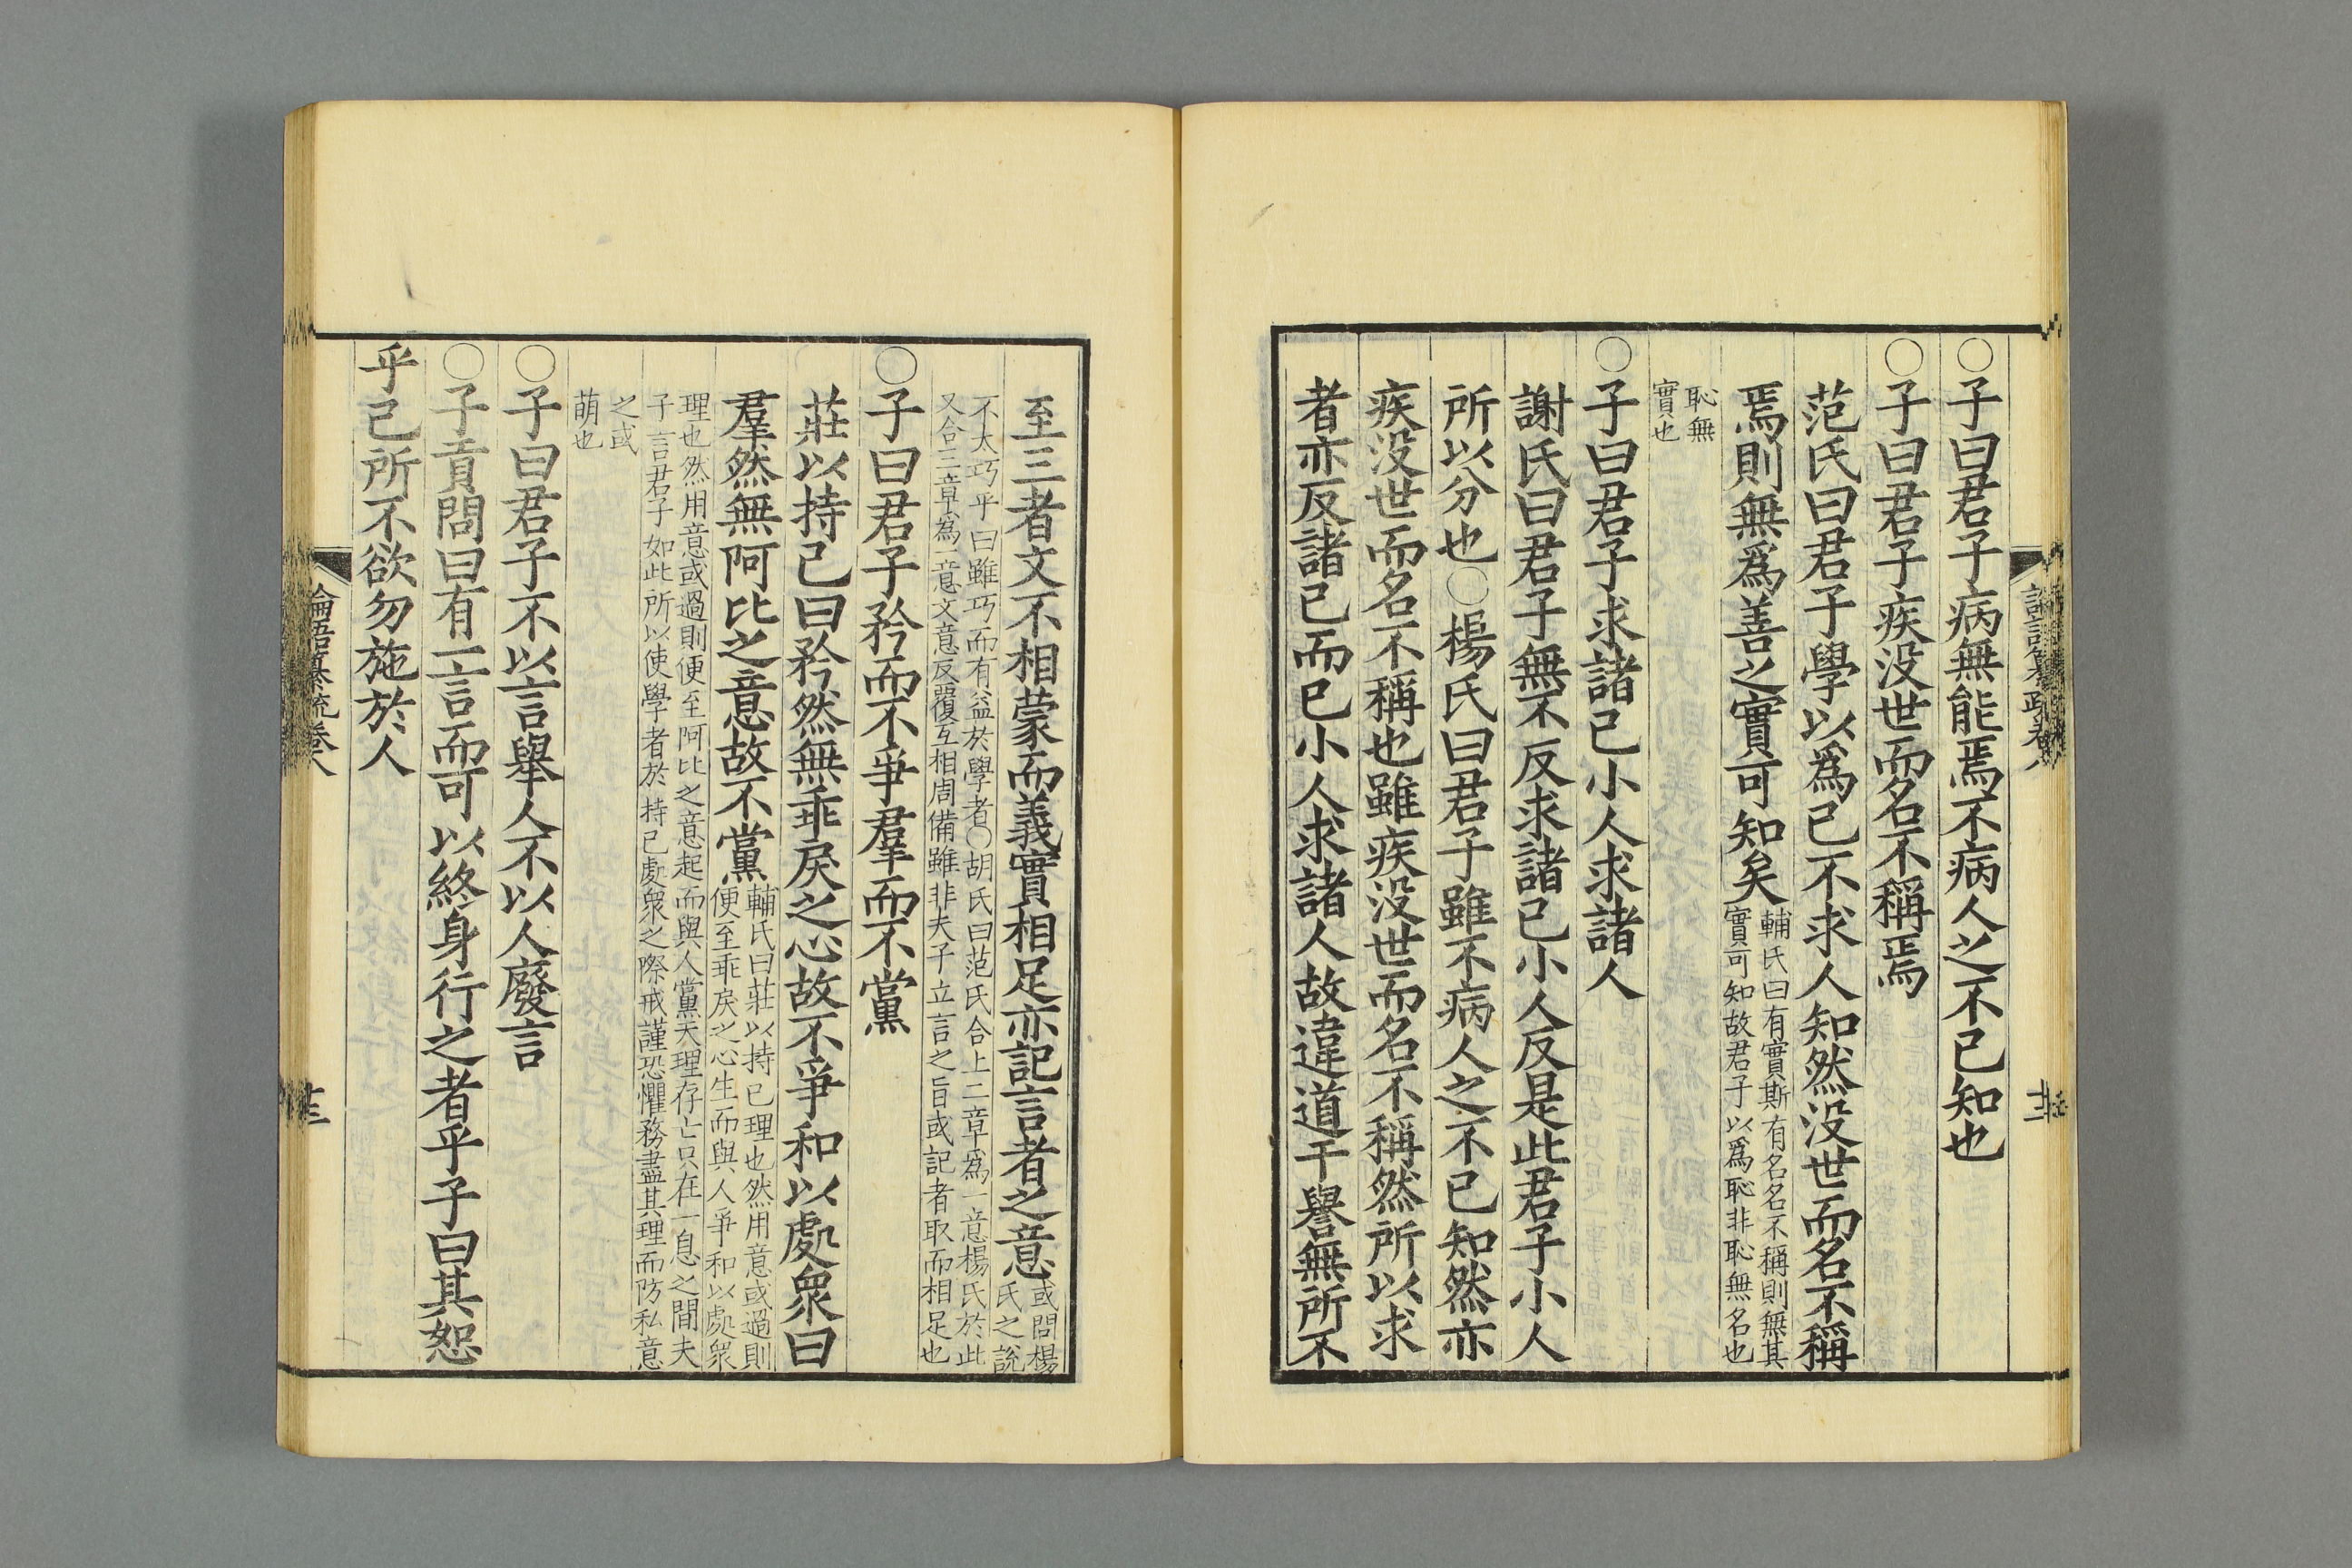 ○子曰君子病無能焉不病人之不己知也
○子曰君子疾没世而名不稱焉
范氏曰君子學以爲己不求人知然没世而名不稱
焉則無爲善之實可知矣
輔氏曰有實斯有名名不稱則無其
實可知故君子以爲恥非恥無名也
恥無
實也
○子曰君子求諸己小人求諸人
謝氏曰君子無不反求諸己小人反是此君子小人
所以分也○楊氏曰君子雖不病人之不己知然亦
疾没世而名不稱也雖疾没世而名不稱然所以求
者亦反諸己而已小人求諸人故違道干譽無所不
至三者文不相蒙而義實相足亦記言者之意
或問楊
氏之說
不太巧乎曰雖巧而有益於學者○胡氏曰范氏合上二章爲一意楊氏於此
又合三章爲一意文意反覆互相周備雖非夫子立言之旨或記者取而相足也
○子曰君子矜而不爭羣而不黨
莊以持己曰矜然無乖戾之心故不爭和以處衆曰
羣然無阿比之意故不黨
輔氏曰莊以持己理也然用意或過則
便至乖戾之心生而與人爭和以處衆
理也然用意或過則便至阿比之意起而與人黨天理存亡只在一息之間夫
子言君子如此所以使學者於持己處衆之際戒謹恐懼務盡其理而防私意
之或
萌也
○子曰君子不以言舉人不以人廢言
○子貢問曰有一言而可以終身行之者乎子曰其恕
乎己所不欲勿施於人
論語纂疏卷八